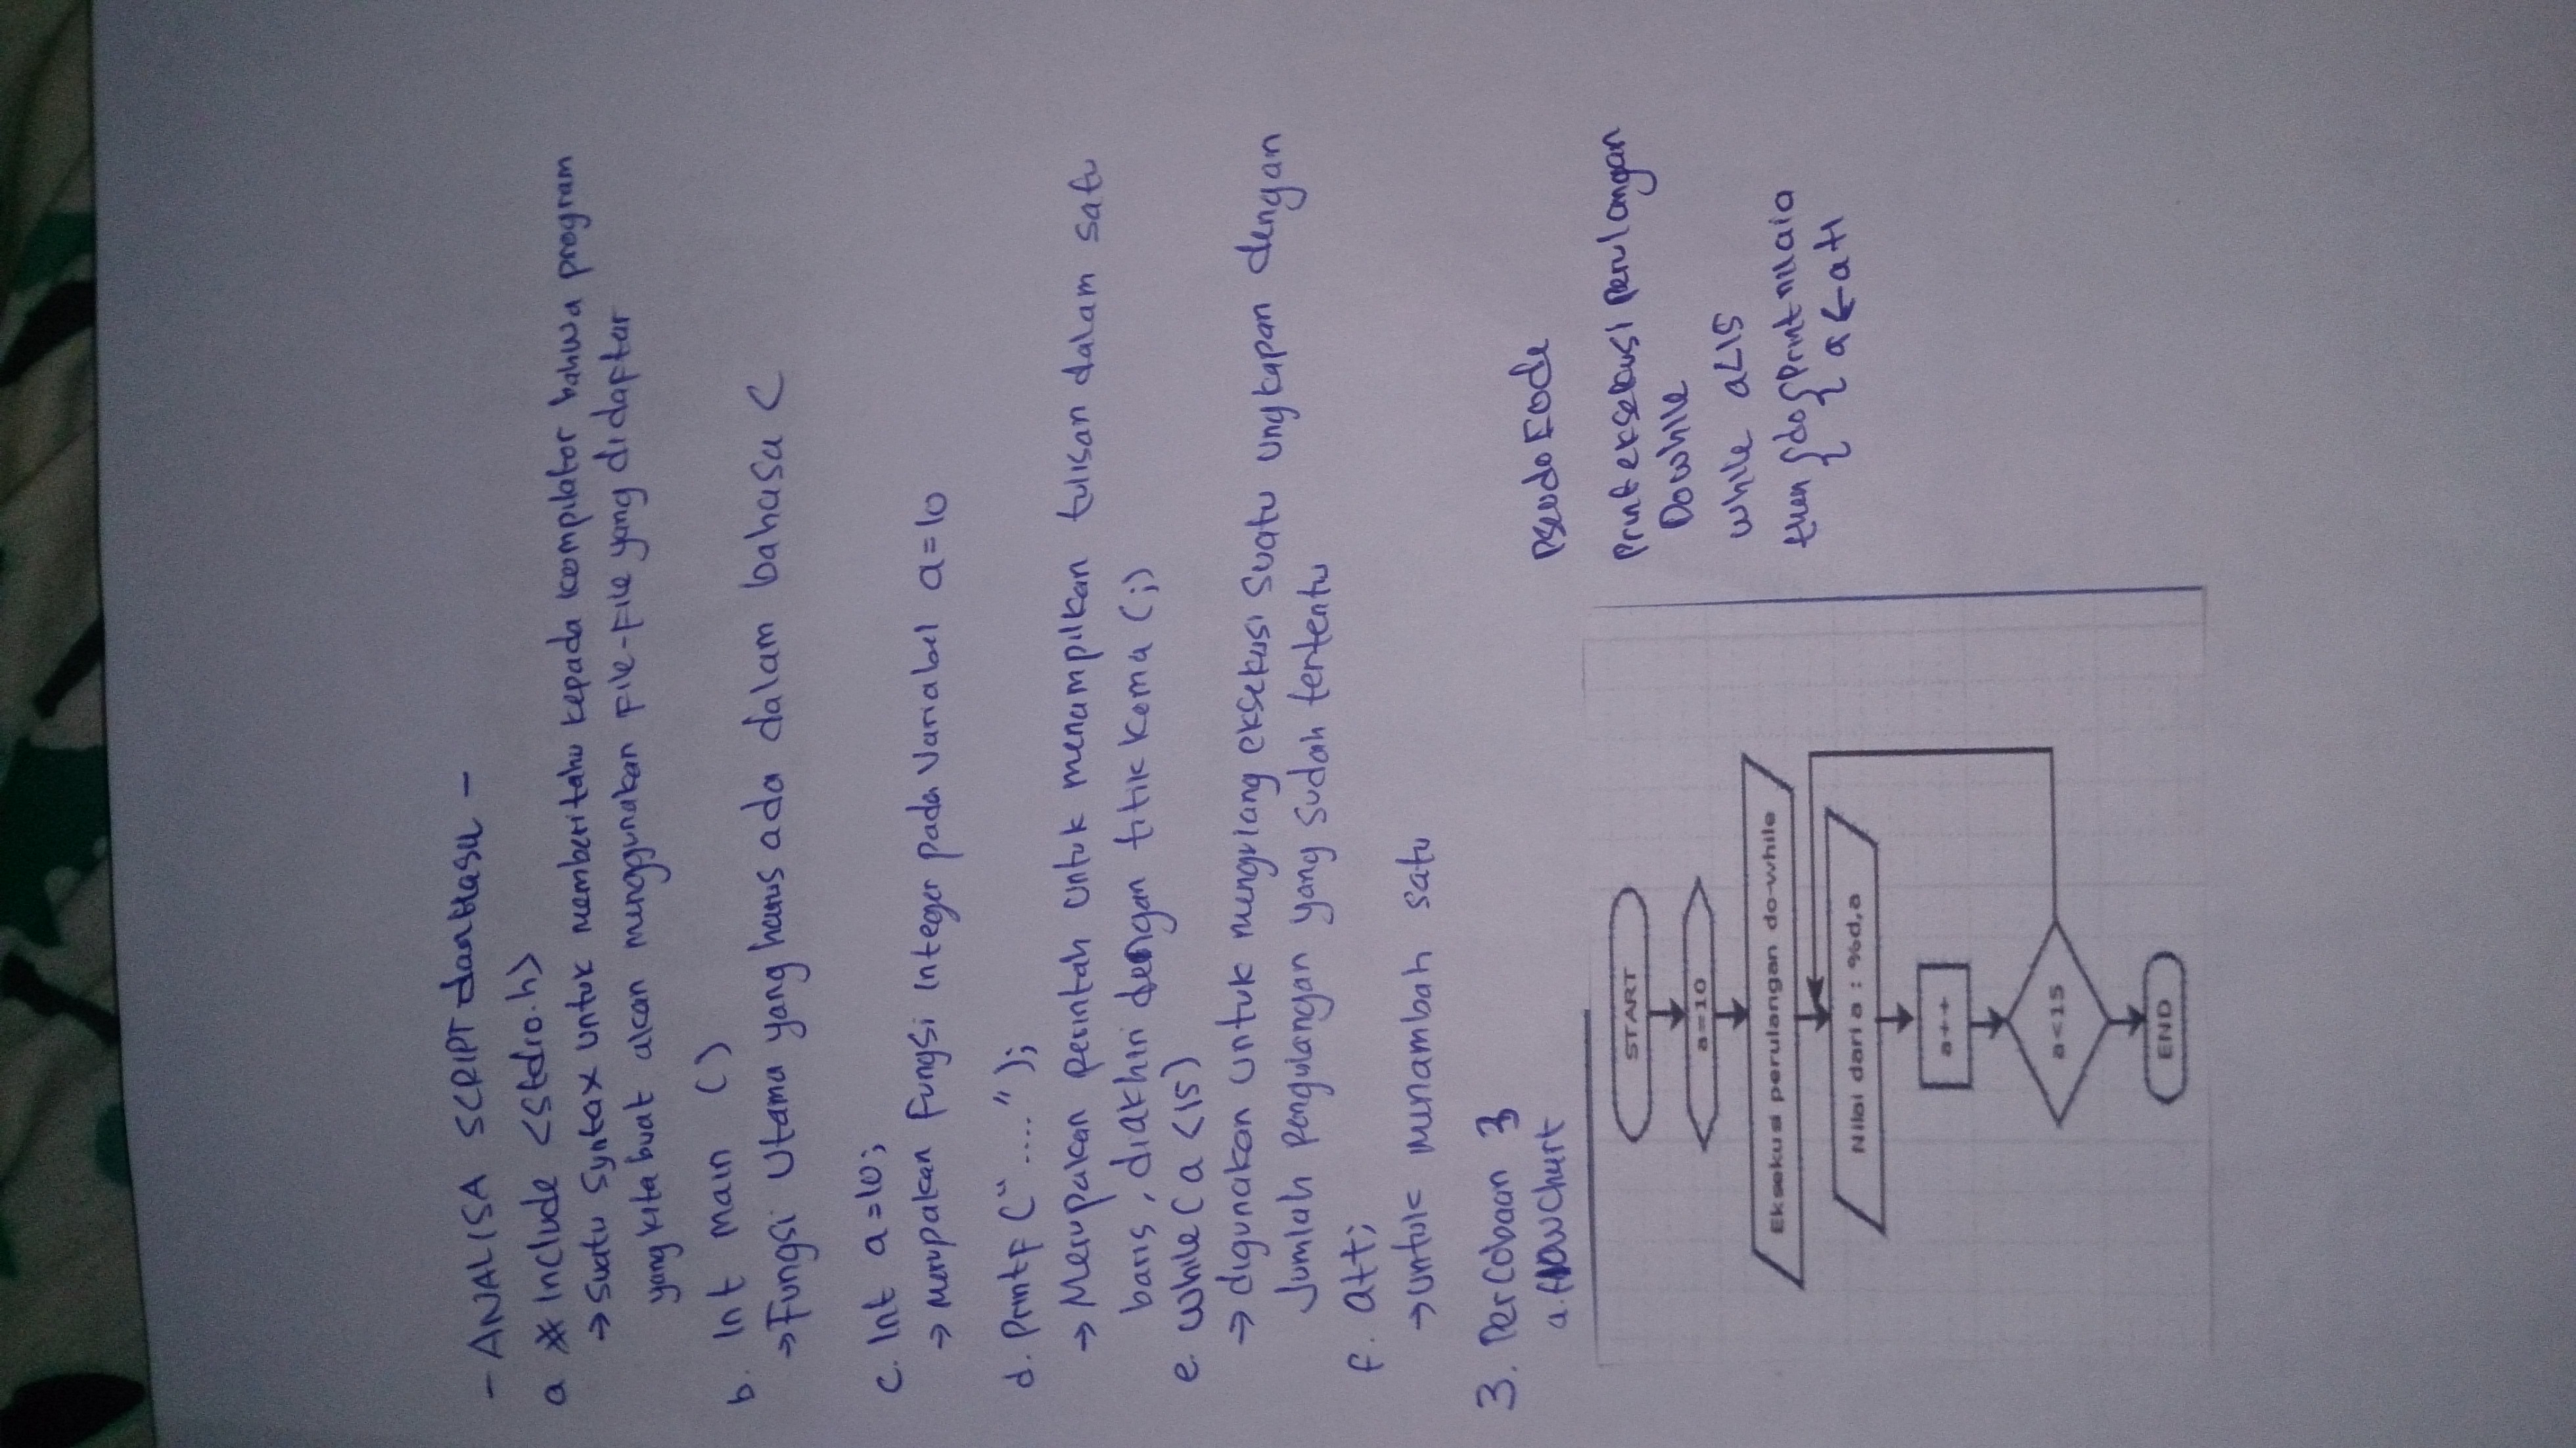 - ANALISA SCRIPT dan Hasil -
a # Include <stdio.h>
→ Suatu Syntax untuk memberitahu kepada kompilator bahwa program
yang kita buat akan menggunakan File-File yang didaftar
b. Int main ()
→ Fungsi Utama yang harus ada dalam bahasa C
c. Int a=10;
→ Merupakan Fungsi Integer pada Variabel a=10
d. Printf (" .... ");
→ Merupakan perintah untuk menampilkan tulisan dalam satu
baris, diakhiri dengan titik koma (;)
e. while (a <15)
→ digunakan untuk mengulang eksekusi suatu ungkapan dengan
Jumlah pengulangan yang sudah tertentu
f. a++;
→ untuk menambah satu
3. Percobaan 3
a. flowchart
START
a=10
Eksekusi perulangan do-while
Nilai dari a : %d,a
a++
a<15
END
Pseudo Code
Print eksekusi perulangan
Do while
while a<15
then { do { Print nilai a
a ← a+1